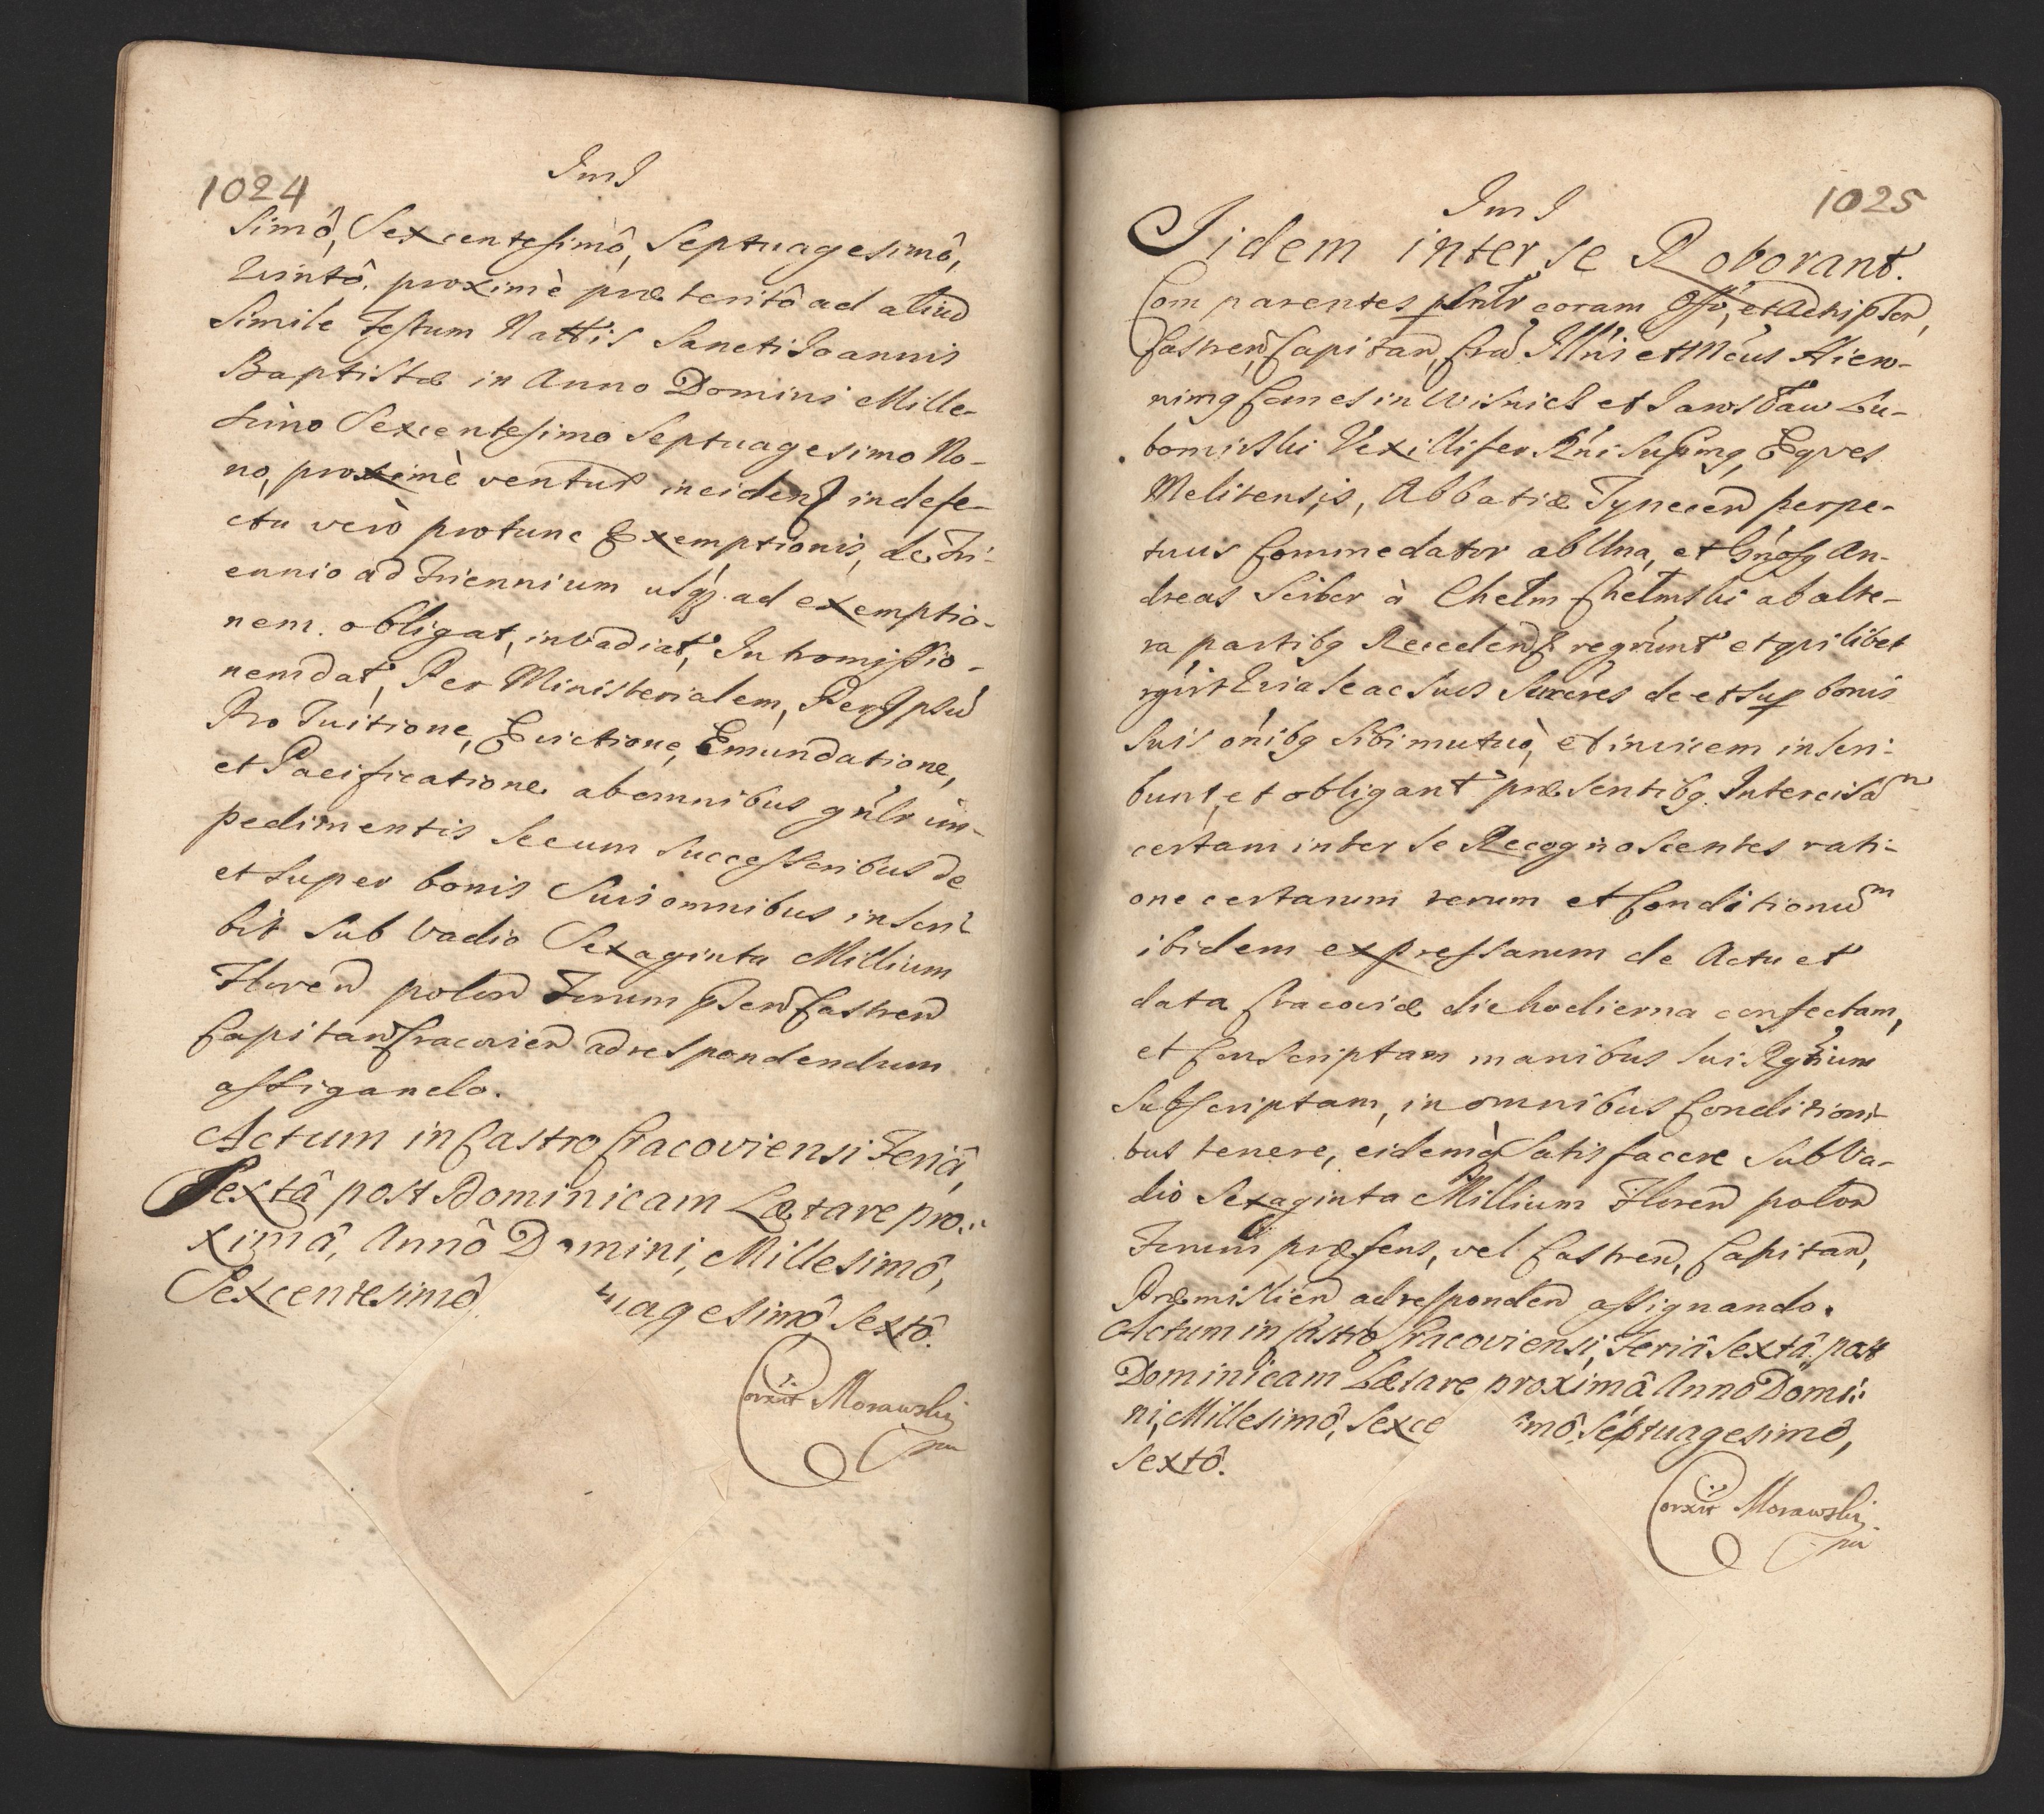 1024
ImJ
simô, Sexcentesimô, Septuagesimô,
Quintô, proximè præteritô ad aliud
Simile Festum Nattis Sancti Joannis
Baptistæ in Anno Domini Mille-
simo Sexcentesimo Septuagesimo No-
no, proximè ventur inciden indefe-
ctu verò protunc Exemptionis, de Tri-
ennio ad Triennium usq ad exemptio-
nem obligat, invadiat, Intromissio-
nem dat, Per Ministerialem, Per Ipsu
Pro Tuitione, Evictione, Emundatione,
et Pacificatione ab omnibus gnlr im-
pedimentis Secum Successoribus de
et super bonis Suis omnibus inscri-
bit Sub Vadio Sexaginta Millium
Floren polon Forum pSen Castren
Capitan Cracovien ad respondendum
assignando.
Actum in Castro Cracoviensi Feriâ,
Sextâ post Dominicam Lætare pro-
ximâ, Annô Domini, Millesimô,
Sexcentesimô uagesimô Sextô.
Corxit Morawski
mp
ImJ
1025
Iidem inter se Roborant.
Comparentes pSntr coram Offo, et Actis pSen,
Castren, Capitan, Cra Illris et Mcus Hiero-
nimg Comes in Wisnicz et Jarosław Lu-
bomirski Vexillifer Rni Supmg, Eqves
Melitensis, Abbatiæ Tynecen perpe-
tuus Commedator ab Una, et Gnosg An-
dreas Scibor à Chełm Chełmski ab alte-
ra partibg Receden regrunt et qvilibet
rgvit Qvia se ac suos Succres de et sup bonis
suis onibg sibi mutuò, et invicem inscri-
bunt, et obligant præsentibg Intercisam
certam inter se Recognoscentes rati-
one certarum rerum et Conditionum
ibidem expressarum de Actu et
data Cracoviæ die hodierna confectam,
et Conscriptam manibus suis Rgnium
Subscriptam, in omnibus Conditioni-
bus tenere, eidemq Satisfacere Sub Va-
dio Sexaginta Millium Floren polon
Forum præsens, vel Castren, Capitan,
Præmislien ad responden assignando.
Actum in Castro Cracoviensi, Feriâ Sextâ post
Dominicam Lætare proximâ Annô Domi-
ni, Millesimô, Sexce imô, Septuagesimô,
Sextô.
Corxit Morawski
mp